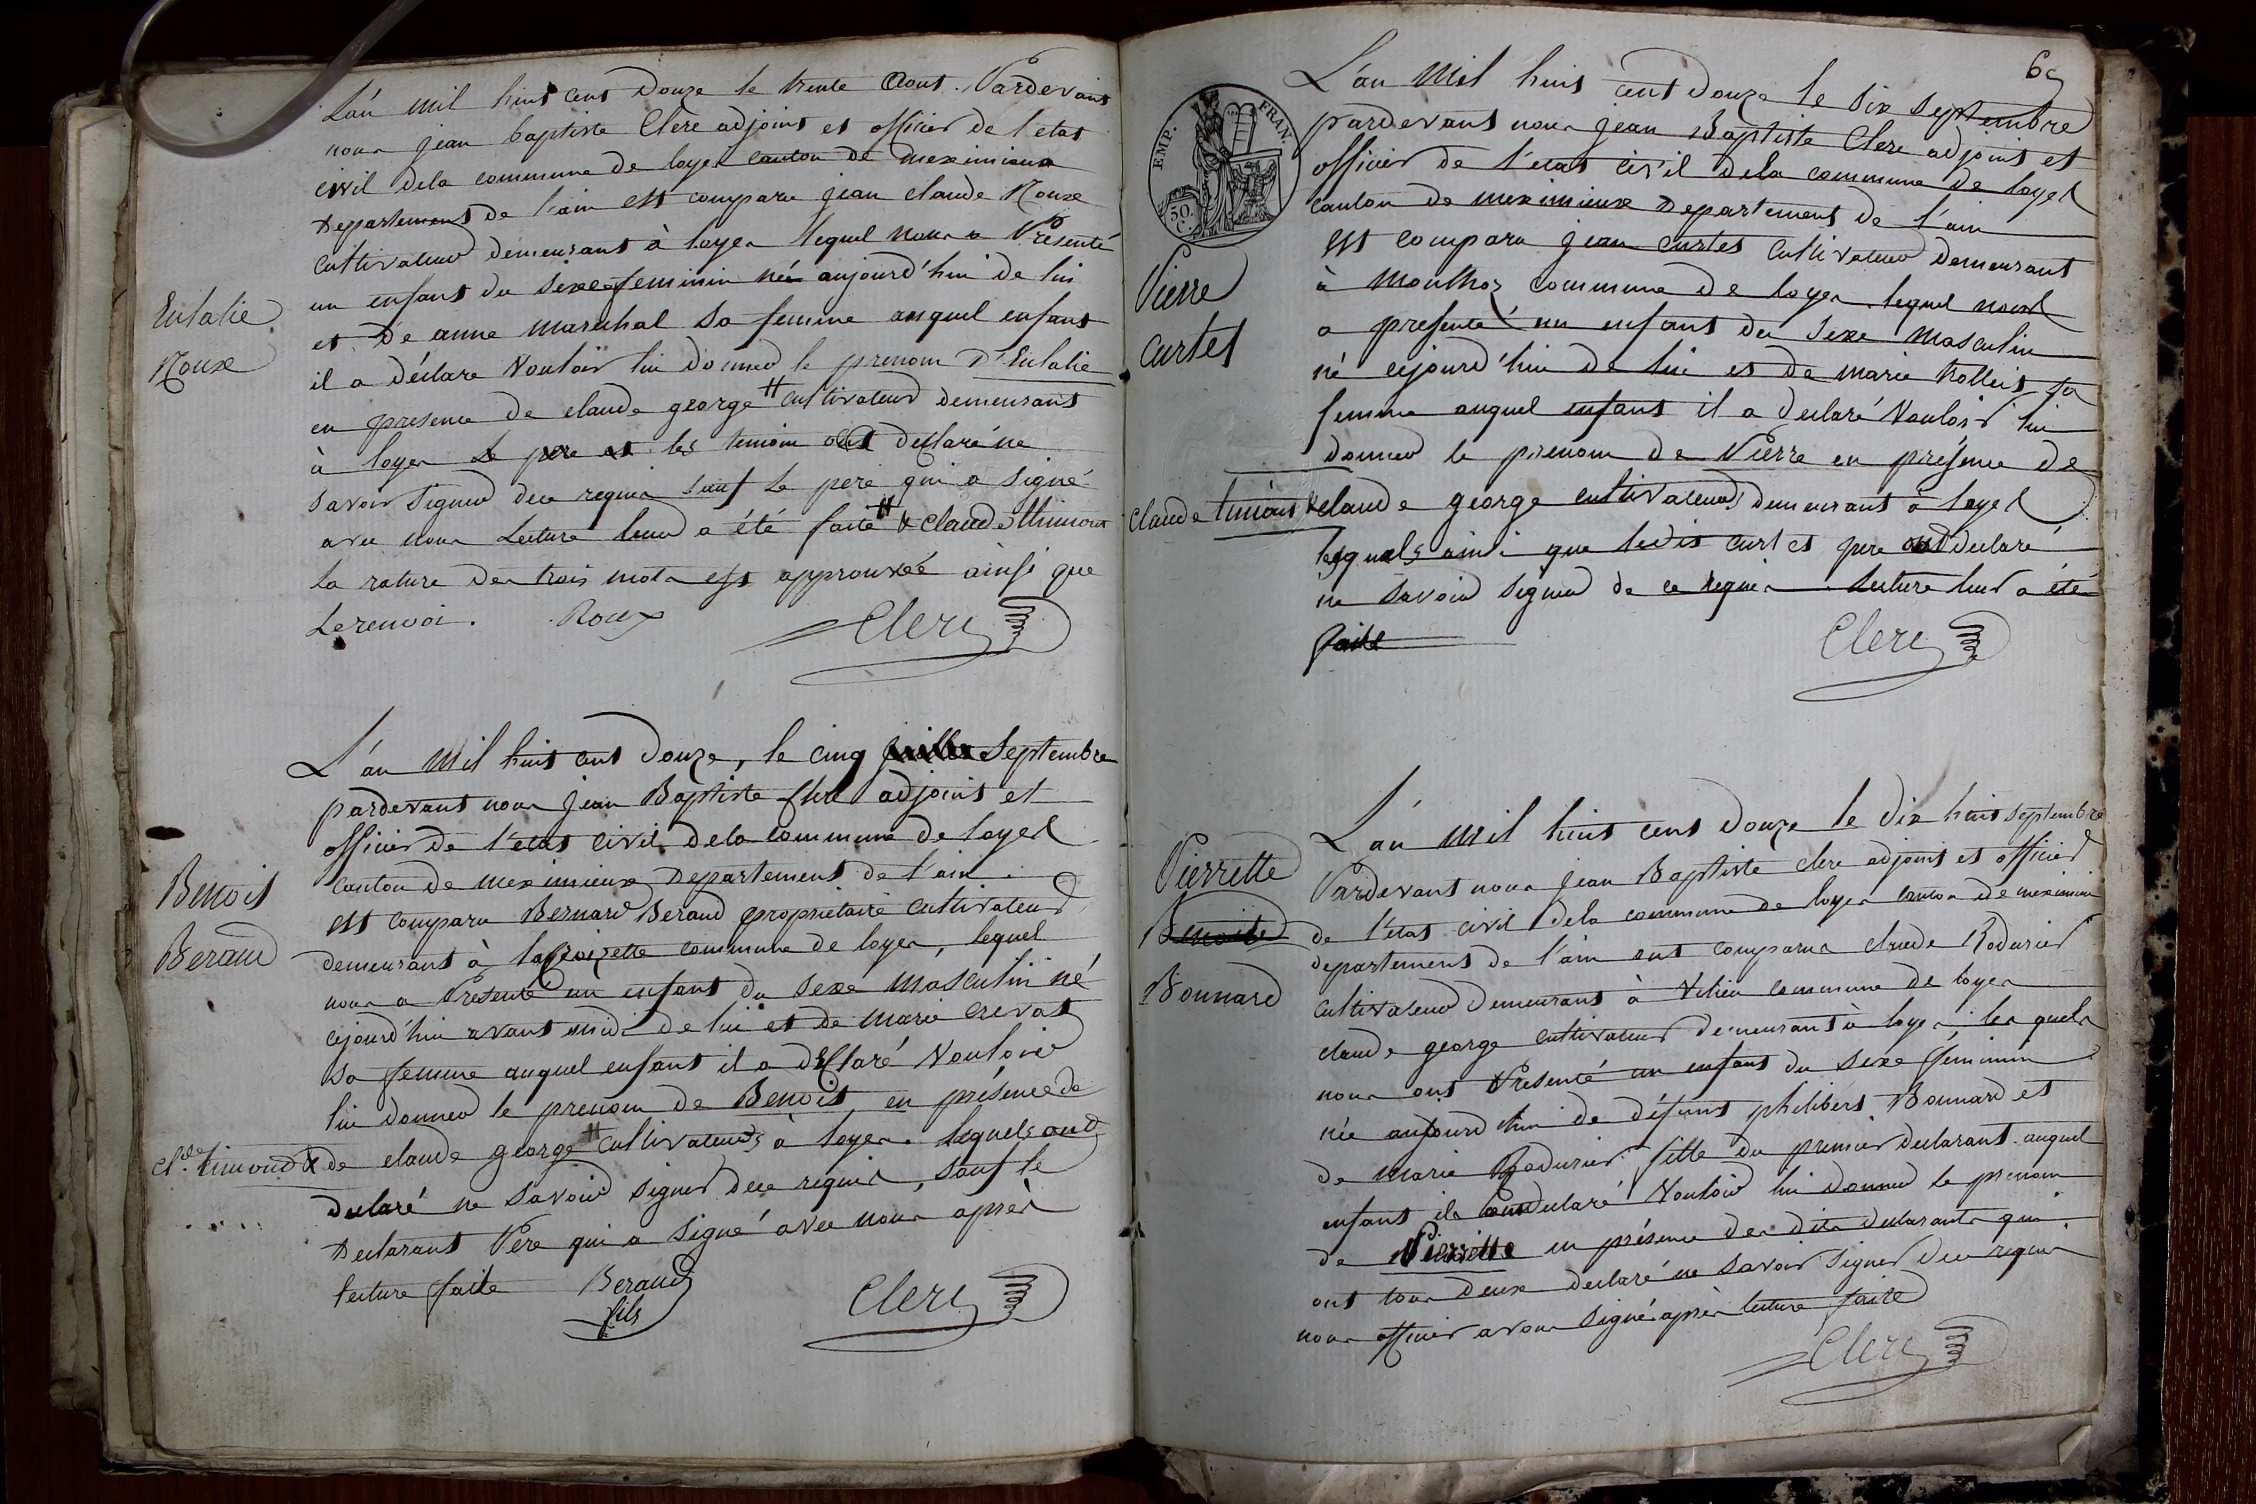 L'an mil huit cent Douze le trente Aout. Pardevant
nous jean baptiste Clerc adjoint et officier de l'etat
civil dela commune de loyes canton de meximieux
Departement de l'ain est comparu jean claude Roux
cultivateur demeurant à loyes lequel nous a Présenté
un enfant du sexe feminin née aujourd'hui de lui
et De anne marechal sa femme auquel enfant
il a déclare Vouloir lui donner le prenom D'Eulalie
en presence de claude george # cultivateur demeurant
à loyes le pere et les temoins ont declaré ne
savoir signer dece requis sauf le pere qui a signé
avec nous Lecture leur a été faite # & claude thimont
la rature des trois mots est approuvée ainsi que
Le renvoi. Roux Clerc
Eulalie
Roux
L'an mil huit cent Douze, le cinq Septembre
pardevant nous jean Baptiste Clerc adjoint et
officier de l'etat civil dela commune de loyes
canton de meximieux Departement de l'ain
est comparu Bernard Beraud proprietaire cultivateur
demeurant à la Croizette commune de loyes, lequel
nous a Présenté un enfant du sexe masculin né
cejourd'hui avant midi de lui et de marie crevat
sa femme auquel enfant il a déclaré Vouloir
lui donner le prenom de Benoit, en présence de
de claude george # cultivateurs à loyes. lequels ont
declaré ne savoir signer dece requis, sauf le
Declarant Pere qui a signé avec nous après
lecture faite Beraud Clerc
fils
Benoit
Beraud
cl.de timond &
60
L'an Mil huit cent Douze le six septembre
pardevant nous jean Baptiste Clerc adjoint et
officier de l'etat civil dela commune de loyes
canton de meximieux Departement de l'ain
est comparu jean curtet cultivateur demeurant
à Monthoz commune de loyes lequel nous
a presenté un enfant du sexe masculin
né cejourd'hui de lui et de marie trollier sa
femme auquel enfant il a declaré Vouloir lui
donner le prenom de Pierre en présence de
claude george cultivateurs demeurant à loyes
lesquels ainsi que ledit curtet pere ont declaré
ne savoir signer de ce requis. Lecture leur a été
faite Clerc
EMP. FRAN.
50.
C.
Pierre
curtet
claude timont &
L'an mil huit cent Douze le dix huit septembre
Pardevant nous jean Baptiste clerc adjoint et officier
de l'état civil dela commune de loyes canton de meximieux
departement de l'ain ont comparus claude Rodurier
cultivateur demeurant à Vilieu commune de loyes
claude george cultivateur demeurant à loyes, lesquels
nous ont Présenté un enfant du sexe féminin
née aujourd'hui de défunt philibert Bonnard et
de Marie Rodurier fille du premier declarant auquel
enfant ils ont declaré Vouloir lui donner le prenom
de Pierrette en présence des dits declarants qui
ont tous deux declaré ne savoir signer dece requis
nous officier avons signé après lecture faite
Clerc
Pierrette
Benoite
Bonnard